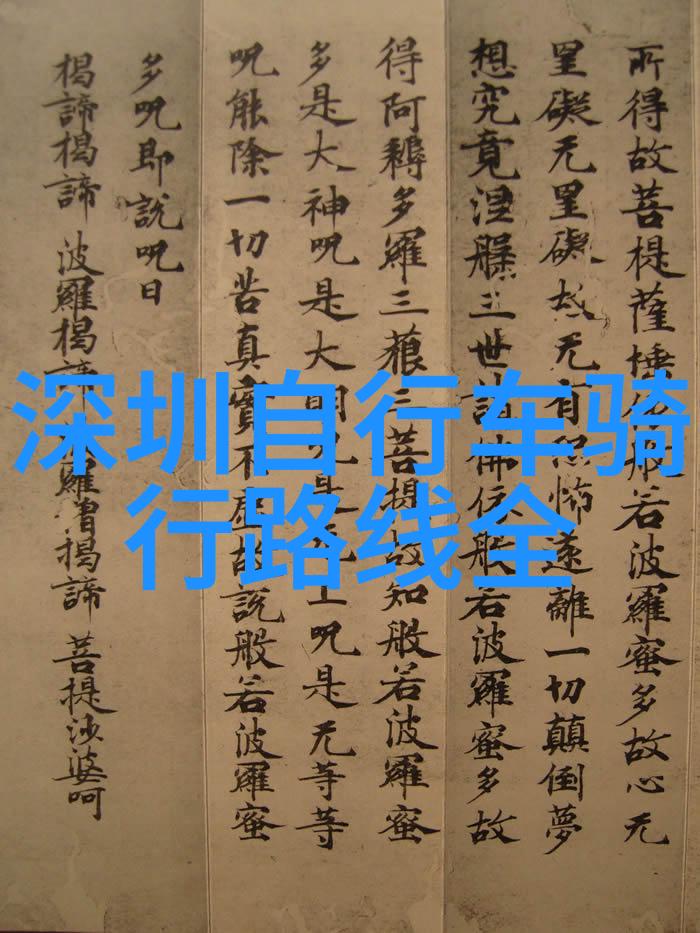 所得故菩提薩埵依般若波羅蜜多故心无
罣礙无罣礙故无有恐怖遠離一切顛倒夢
想究竟涅槃三世諸佛依般若波羅蜜多故
得阿耨多羅三藐三菩提故知般若波羅蜜
多是大神呪是大明呪是无上呪是无等等
呪能除一切苦真實不虛故說般若波羅蜜
多呪即說呪曰
揭諦揭諦 波羅揭諦 羅僧揭諦 菩提沙婆呵
深圳自行车骑
行路线全